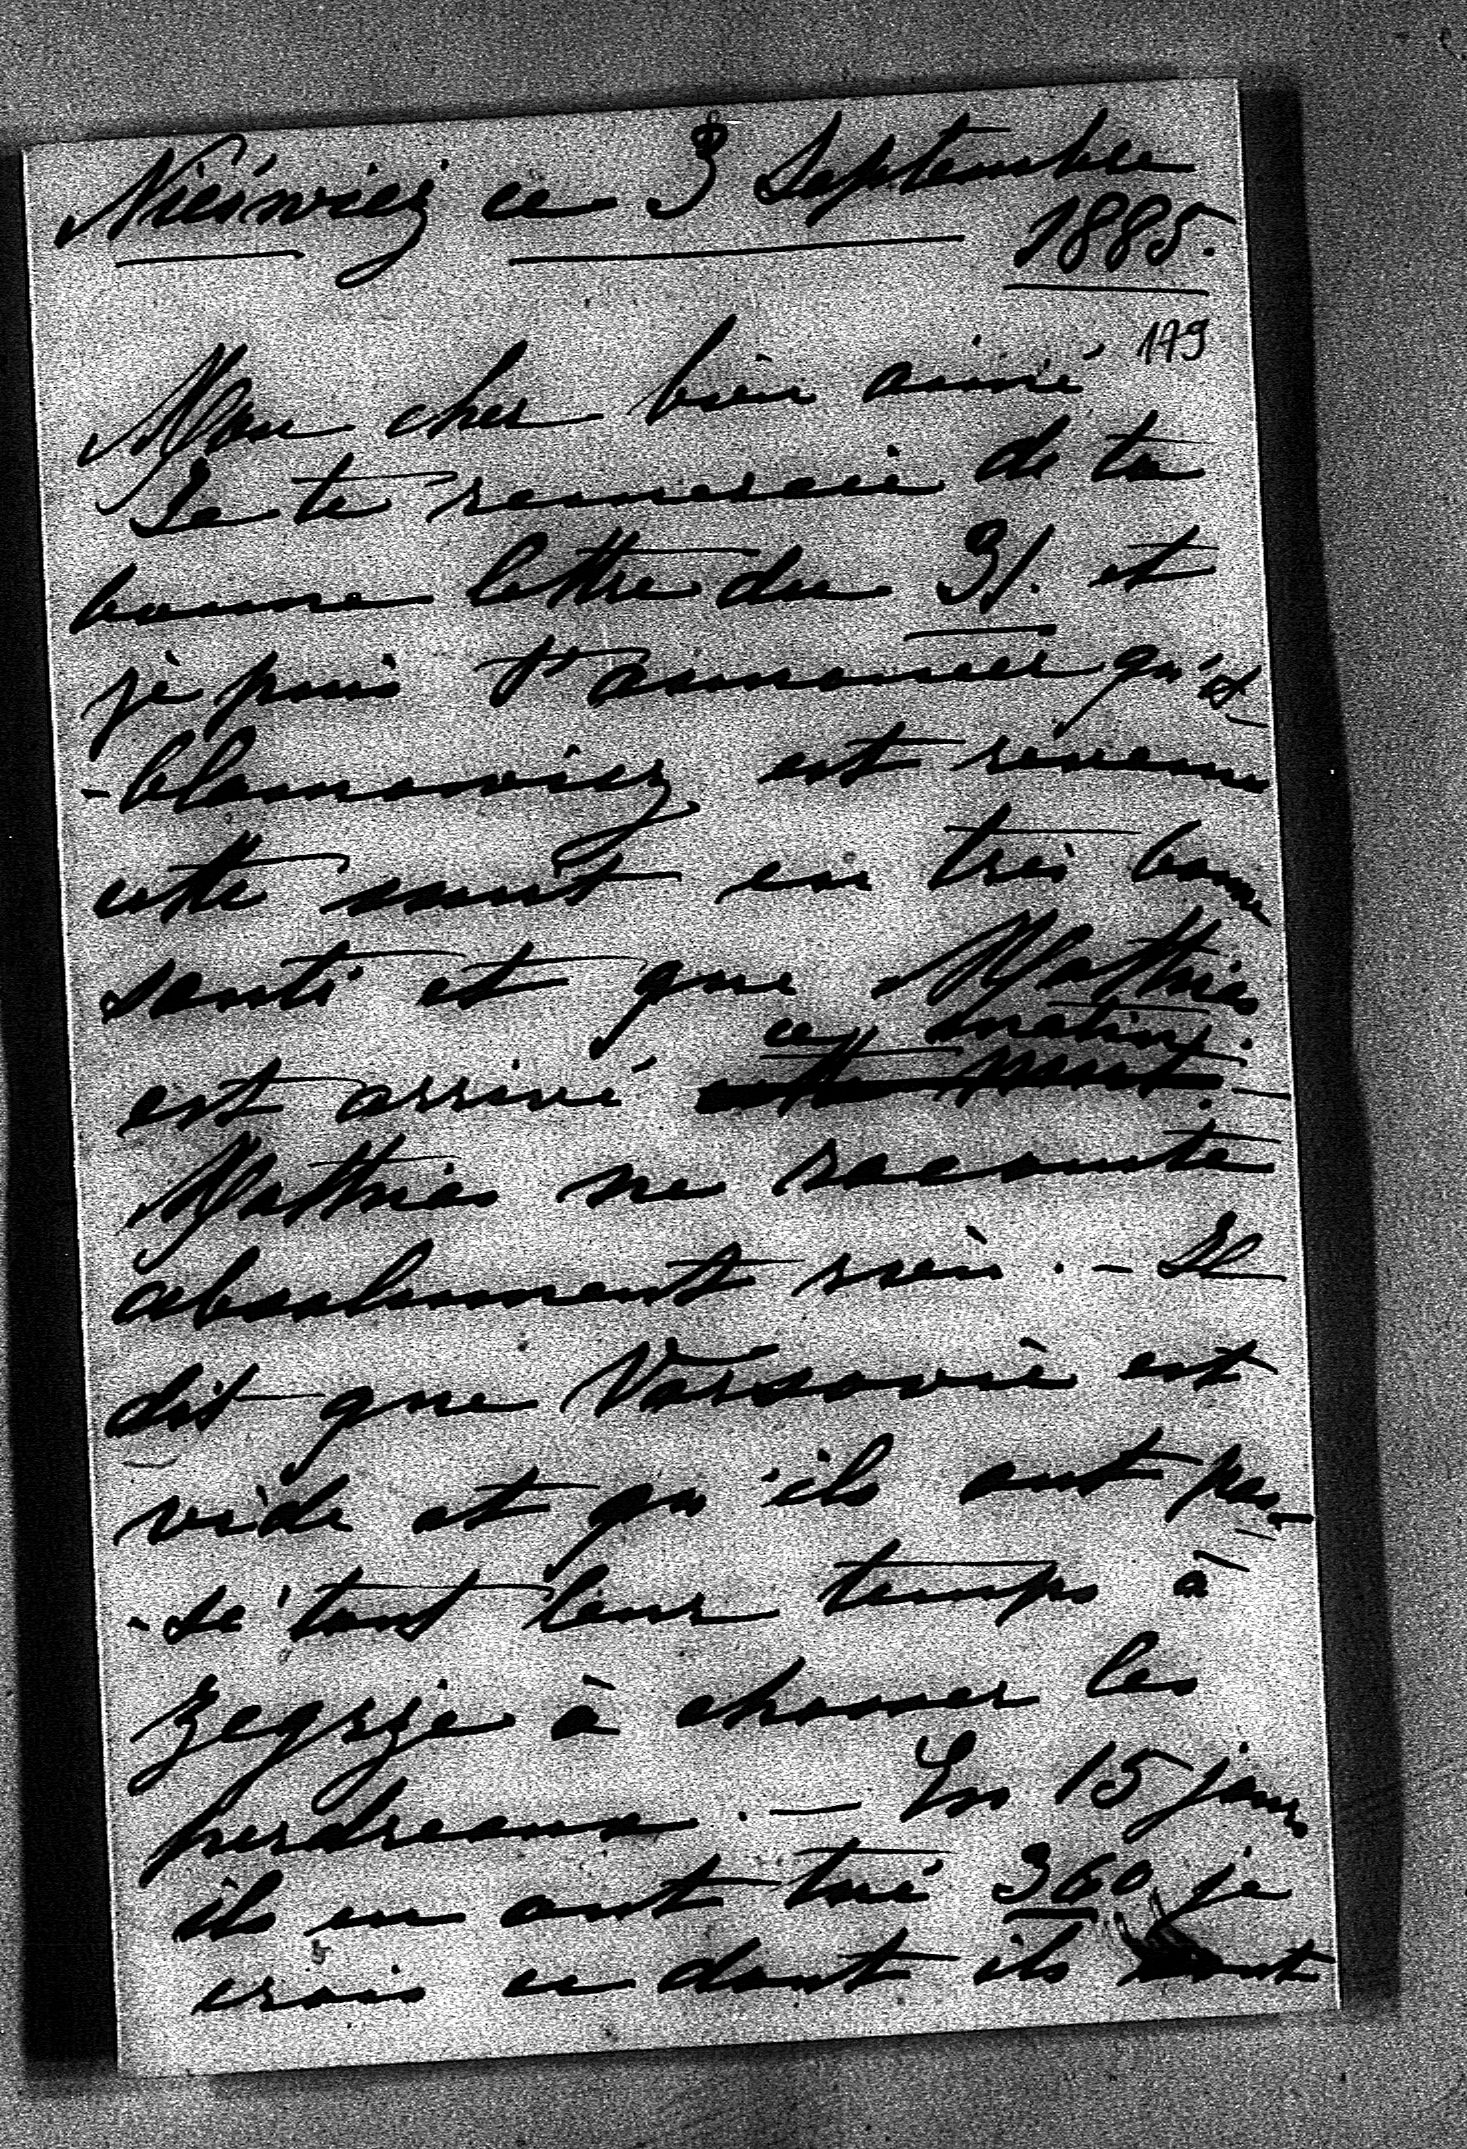 Nieświez ce 3 Septembre
1885.
179
Mon cher bien aimé
Je te remercie de ta
bonne lettre du 31. et
je puis t'annoncer qu'
-blonowicz est revenu
cette nuit en très bonne
santé et que Mathias
ce matin.
est arrivé cette nuit.
Mathias ne raconte
absolument rien. - Il
dit que Varsovie est
vide et qu'ils ont pas-
-sé tout leur temps à
Zegrze à chasser les
perdreaux. — En 15 jours
ils en ont tué 360 je
crois ce dont ils sont